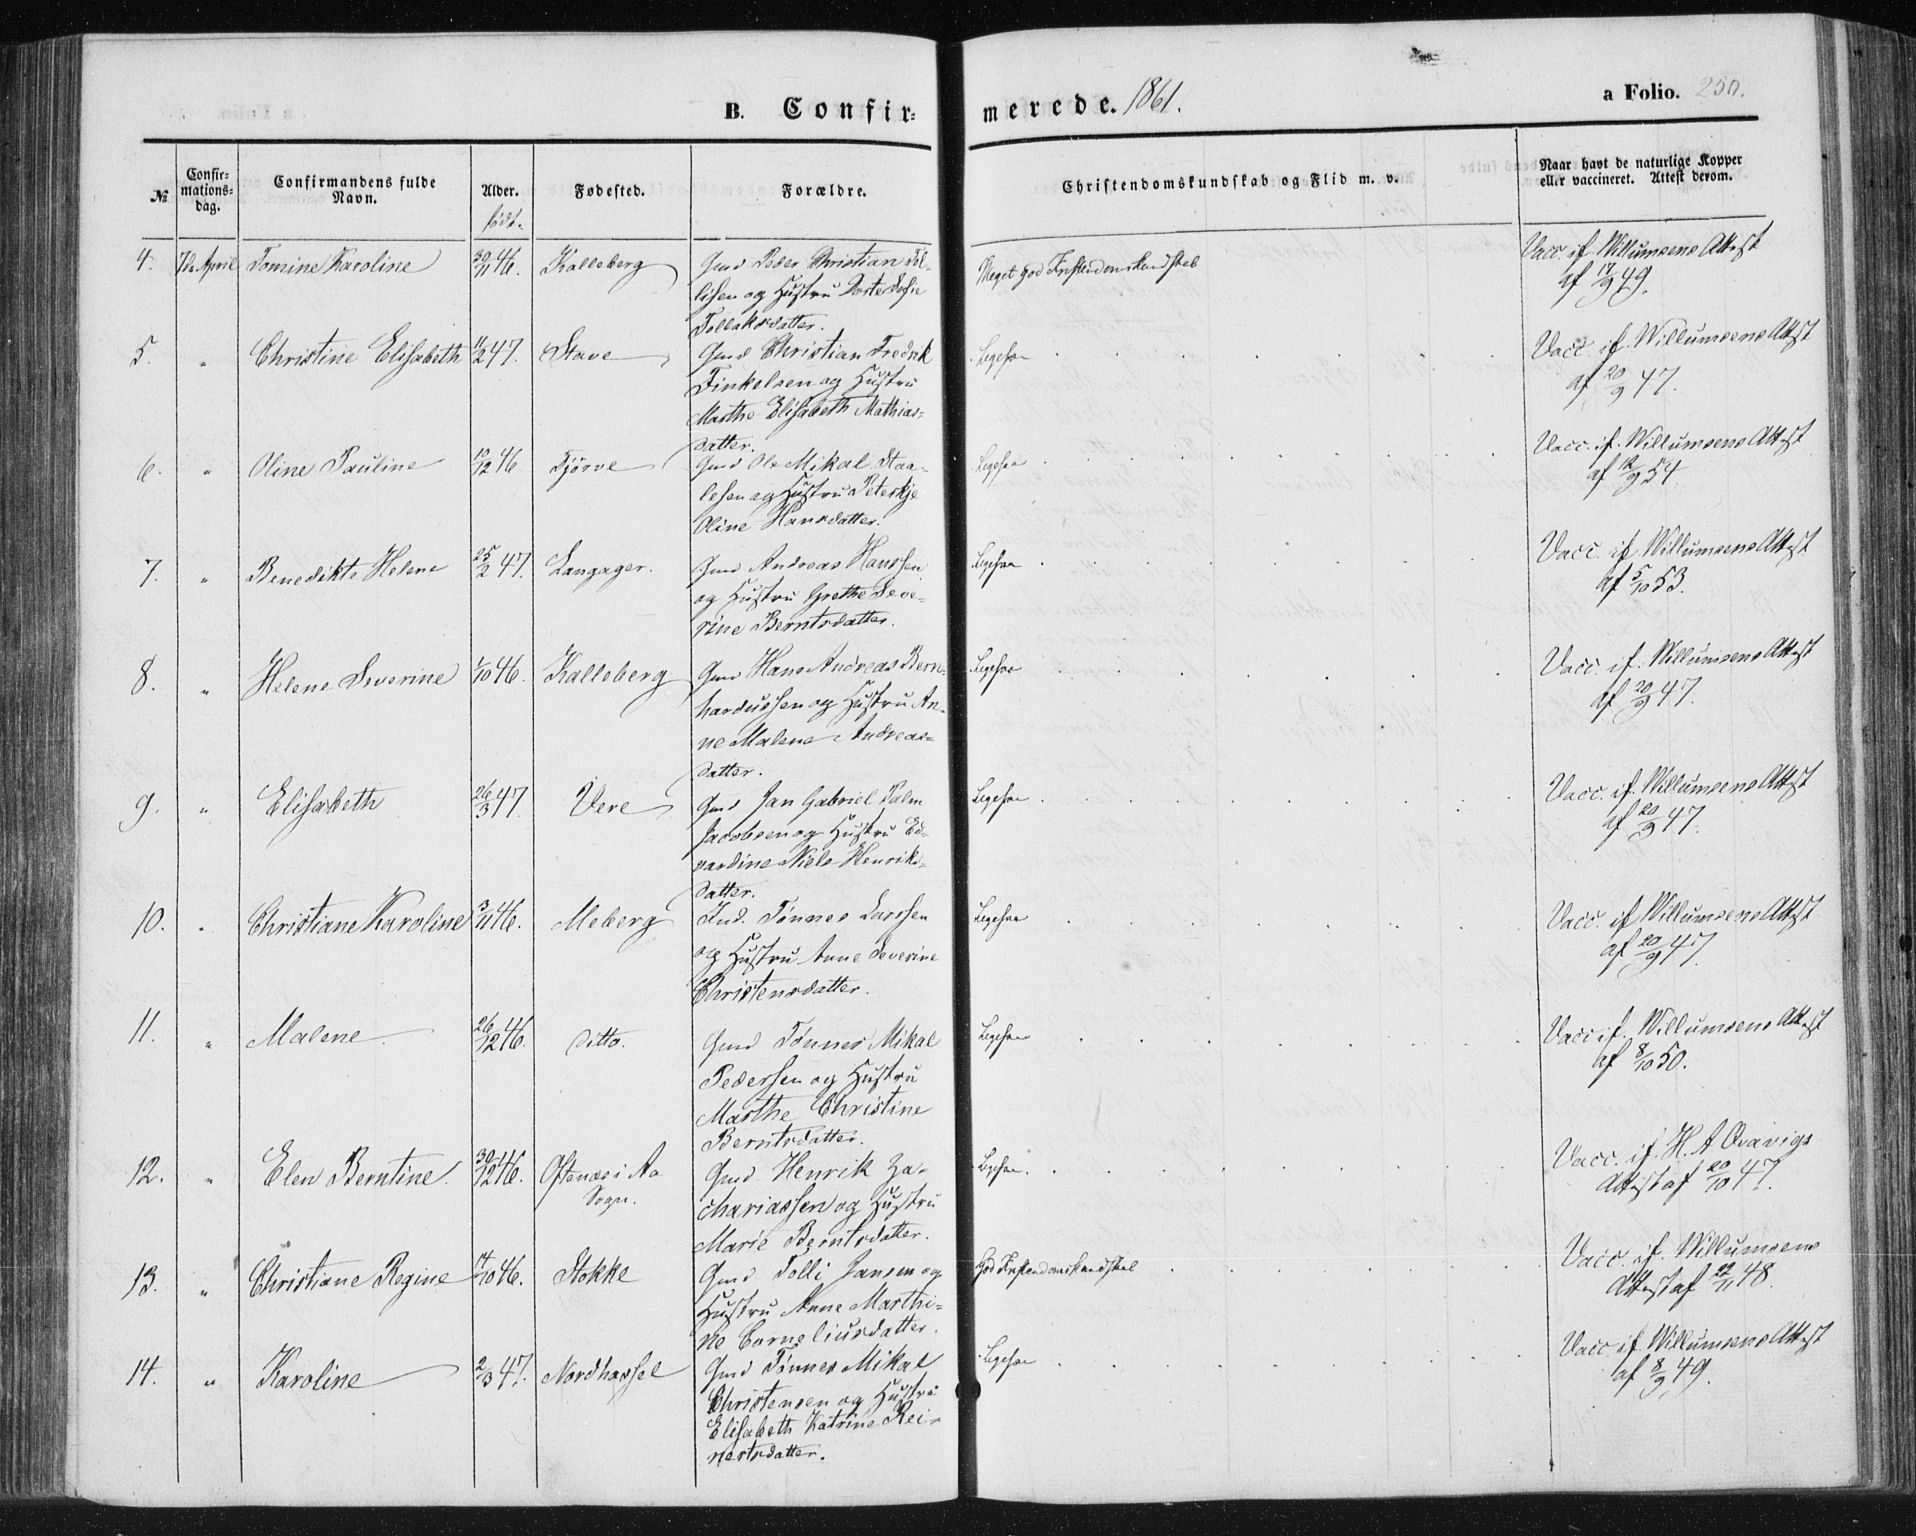 B. Confir-
merede. 1861.
a Folio. 250.
No
Confir-
mations-
dag.
Confirmandens fulde
Navn.
Alder.
født.
Fødested.
Forældre.
Christendomskundskab og Flid m. v.
Naar havt de naturlige Kopper
eller vaccineret. Attest derom.
4. 7de April Tomine Karoline 30/11 46. Kalleberg Gmd Peder Christian Tol-
lisen og Hustru Dorte Sofie
Tollaksdatter.
Meget god Kristendomskundskab
Vacc. if. Willumsens Attest
af 17/9 49.
5. " Christine Elisabeth 11/2 47. Stave Gmd Christian Fredrik
Finkelsen og Hustru
Marthe Elisabeth Mathias-
datter.
Ligesaa
Vacc. if. Willumsens Attest
af 20/9 47.
6. " Oline Pauline 10/12 46 Tjörve Gmd Ole Mikal Staa-
lesen og Hustru Peterkje
Oline Hansdatter.
Ligesaa
Vacc. if. Willumsens Attest
af 12/9 54.
7. " Benedikte Helene 25/2 47. Langager. Gmd Andreas Hanssen
og Hustru Grethe Seve-
rine Berntsdatter.
Ligesaa
Vacc. if Willumsens Attest
af 5/10 53.
8. " Helene Severine 1/10 46. Kalleberg Gmd Hans Andreas Bern-
hardussen og Hustru An-
ne Malene Andreas-
datter.
Ligesaa
Vacc. if. Willumsens Attest
af 20/9 47.
9. " Elisabeth 26/3 47. Vere Gmd Jan Gabriel Palm
Jacobsen og Hustru Ed-
vardine Niels Henriks-
datter.
Ligesaa
Vacc. if. Willumsens Attest
af 20/9 47.
10. " Christiane Karoline 3/11 46. Meberg Ind. Tønnes Larssen
og Hustru Anne Severine
Christensdatter.
Ligesaa
Vacc. if Willumsens Attest
af 20/9 47.
11. " Malene 26/12 46. ditto. Gmd Tønnes Mikal
Pedersen og Hustru
Marthe Christine
Berntsdatter.
Ligesaa
Vacc if. Willumsens Attest
af 8/10 50.
12. " Elen Berntine. 30/12 46. Oftenæs i Aa
Sogn.
Gmd Henrik Za-
chariassen og Hustru
Marie Berntsdatter.
Ligesaa
Vacc. if. H. A Qvavigs
Attest af 20/10 47.
13. " Christiane Regine 14/10 46. Stokke Gmd Tolli Jansen og
Hustru Anne Marthi-
ne Corneliusdatter.
God Kristendomskundskab
Vacc. if. Willumsens
Attest af 22/11 48.
14. " Karoline 2/3 47. Nordhassel Gmd Tønnes Mikal
Christensen og Hustru
Elisabeth Katrine Rei-
nertsdatter.
Ligesaa
Vacc. if. Willumsens Attest
af 8/9 49.